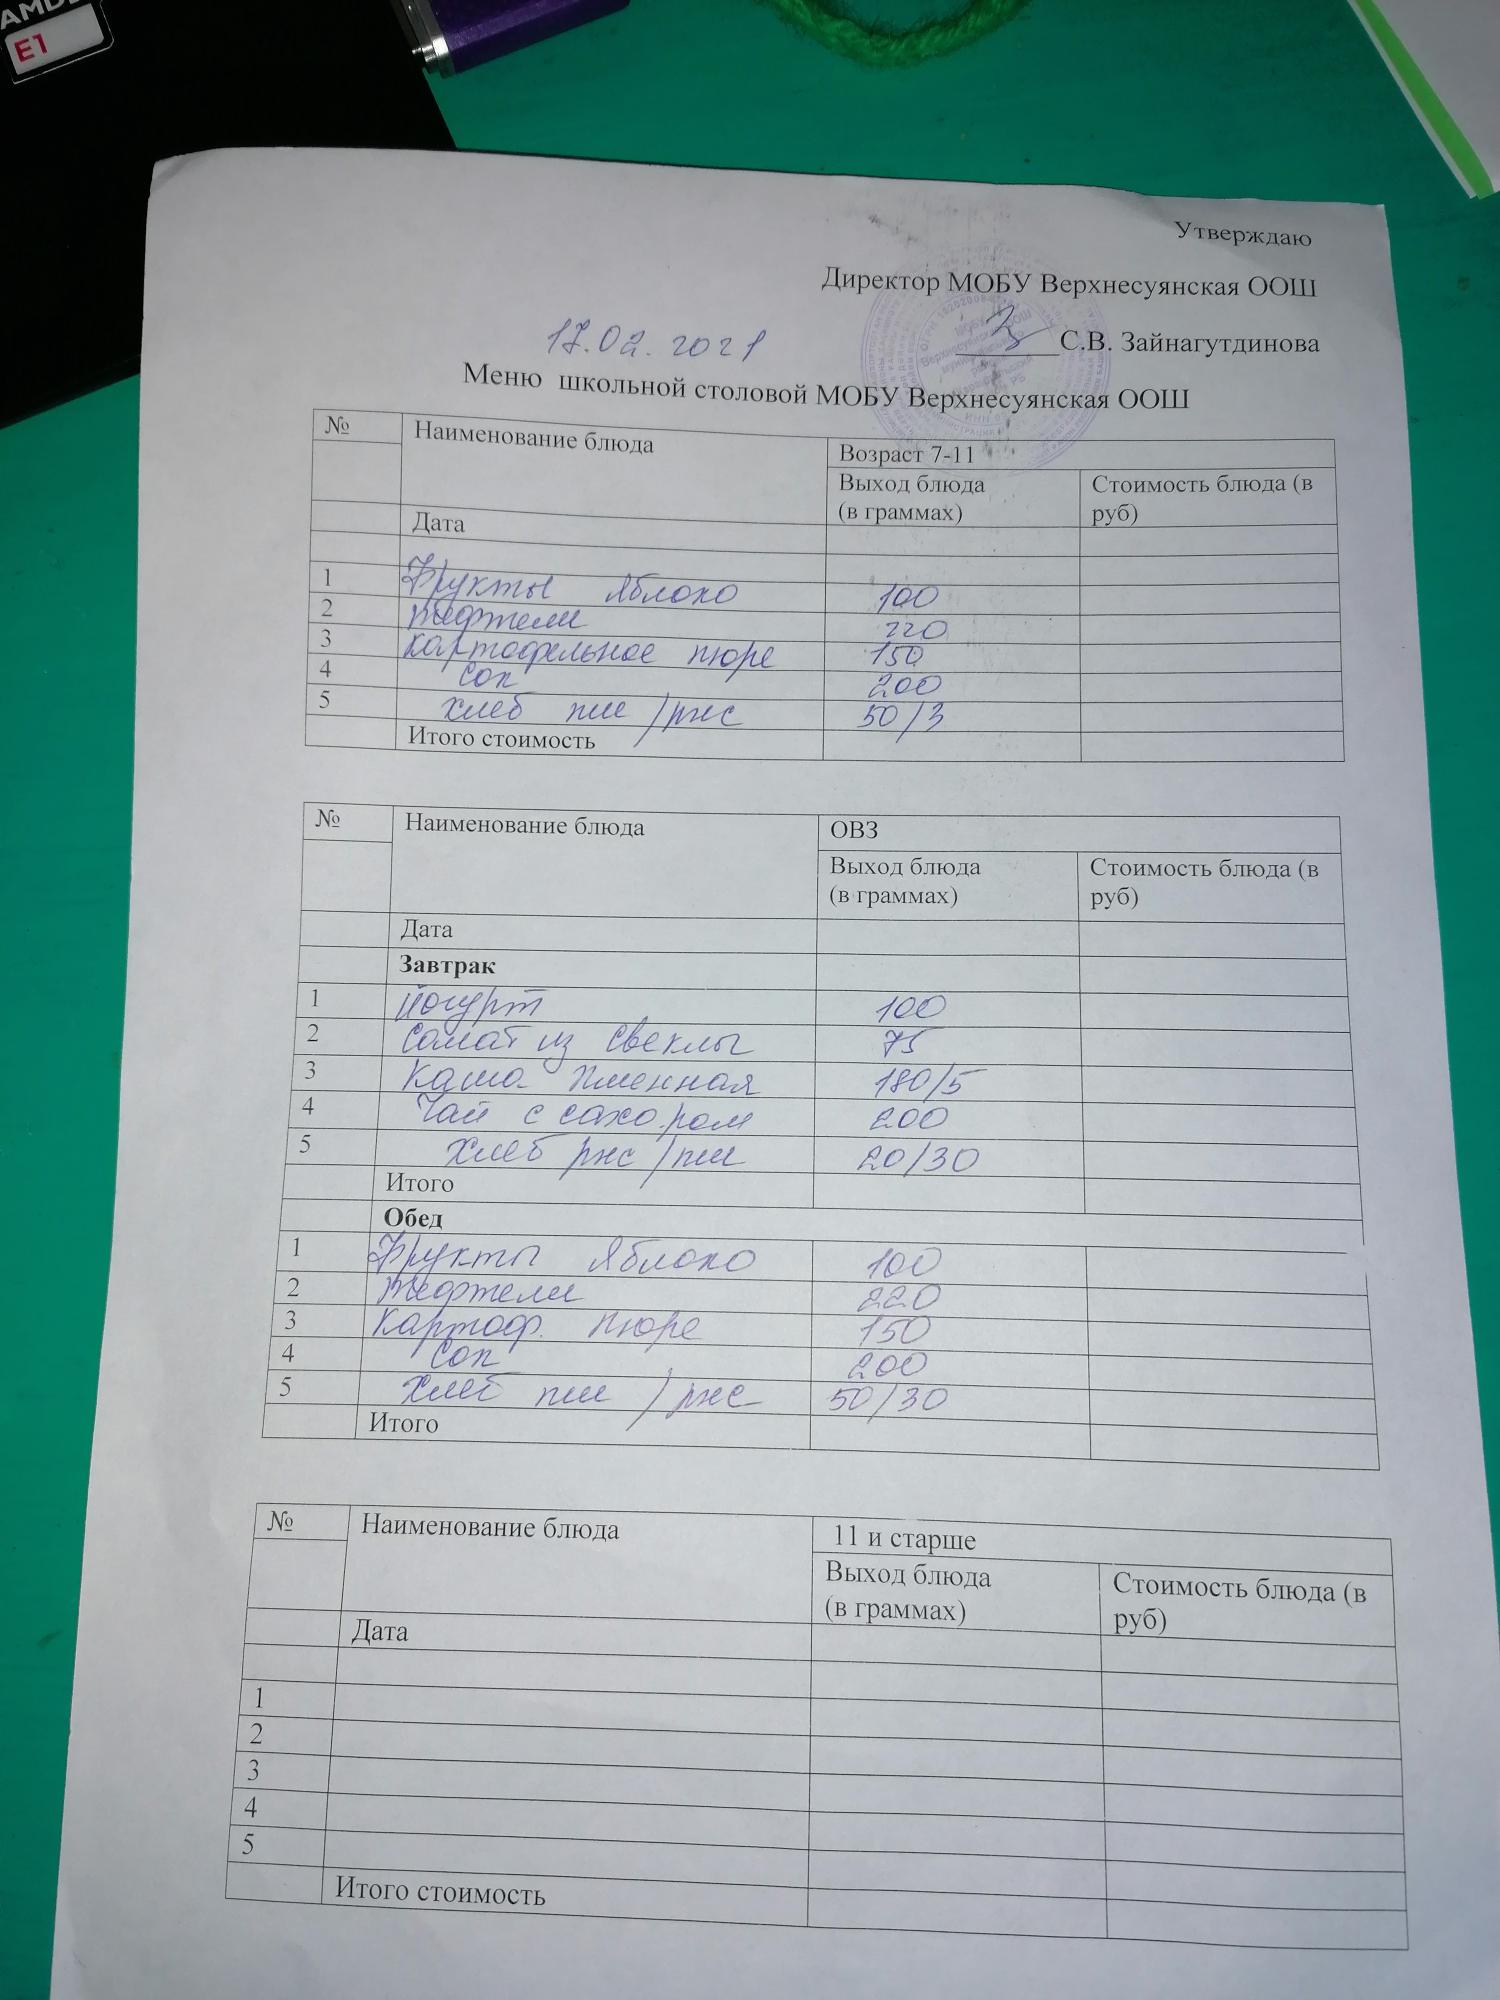 AMD
E1
Утверждаю
Директор МОБУ Верхнесуянская ООШ
17.02.2021
С.В. Зайнагутдинова
Меню школьной столовой МОБУ Верхнесуянская ООШ
№ Наименование блюда Возраст 7-11
Выход блюда (в граммах) Стоимость блюда (в руб)
Дата
1 Фрукты яблоко 100
2 тефтели 220
3 картофельное пюре 150
4 сок 200
5 хлеб пш/рж 50/3
Итого стоимость
№ Наименование блюда ОВЗ
Выход блюда (в граммах) Стоимость блюда (в руб)
Дата
Завтрак
1 йогурт 100
2 салат из свеклы 75
3 Каша 180/5
4 Чай с сахаром 200
5 Хлеб рж/пш 20/30
Итого
Обед
1 Фрукты яблоко 100
2 тефтели 220
3 Картоф. пюре 150
4 Сок 200
5 Хлеб пш/рж 50/30
Итого
№ Наименование блюда 11 и старше
Выход блюда (в граммах) Стоимость блюда (в руб)
Дата
1
2
3
4
5
Итого стоимость